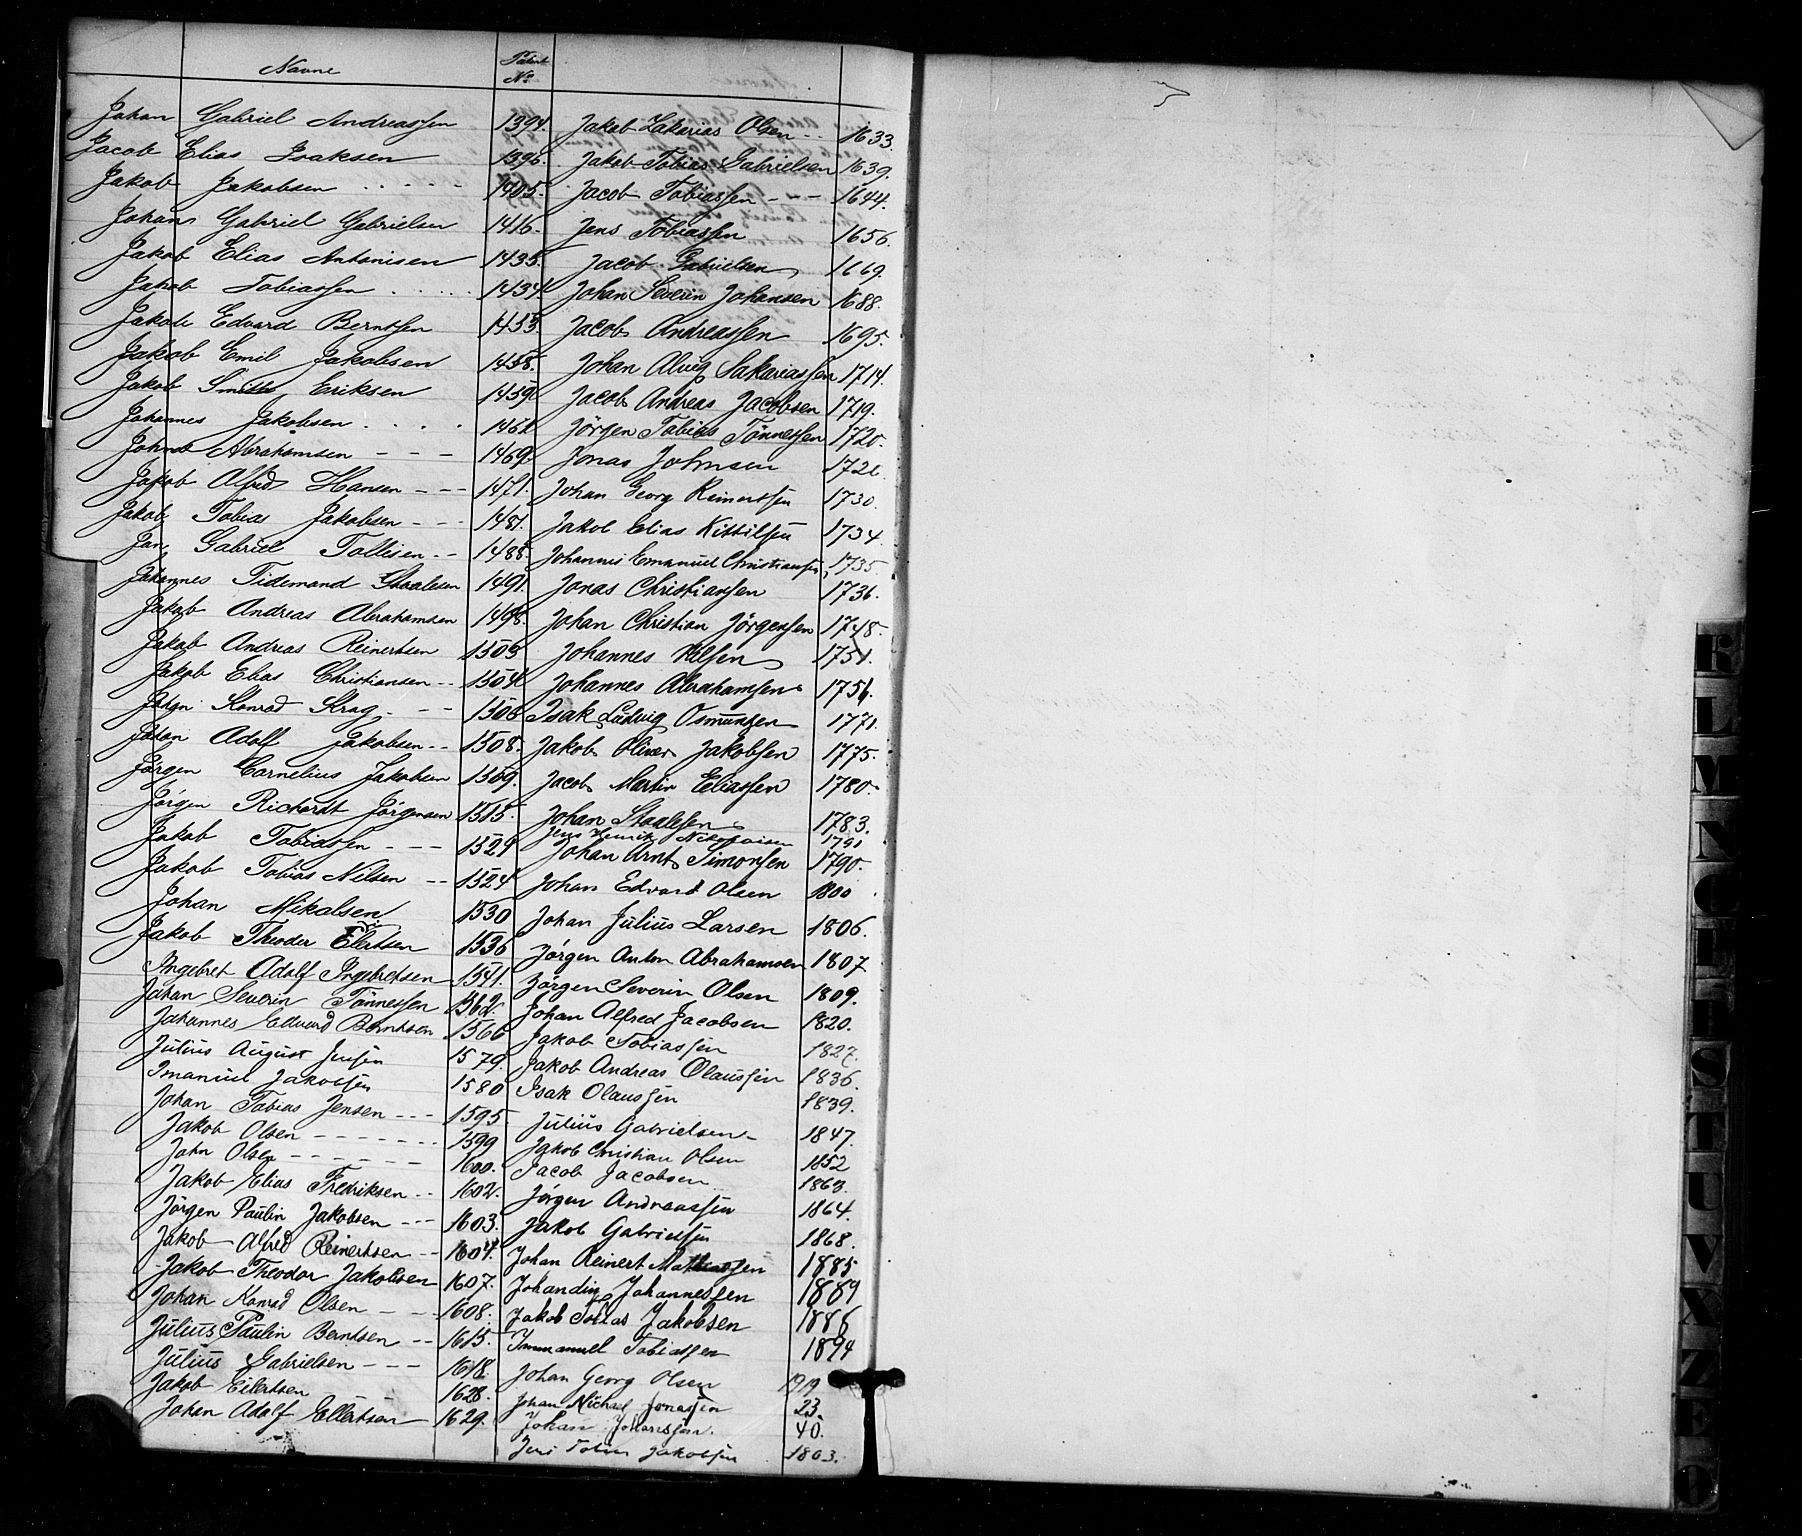 Navne
Patent No
Johan Gabriel Andreassen 1394.
Jacob Elias Isaksen 1396.
Jakob Jakobsen . . . . . 1405.
Johan Gabriel Gabrielsen 1416.
Jakob Elias Antonisen 1435.
Jakob Tobiassen . . . . . 1434
Jakob Edvard Berntsen 1453.
Jakob Emil Jakobsen 1458.
Jakob Smith Eriksen 1459
Johannes Jakobsen . . . . 1461
Abrahamsen - - - 1469.
Jakob Alfred Hansen - - - 1471.
Jakob Tobias Jakobsen - - - 1481.
Jan Gabriel Tollisen - - 1488.
Johannes Tidemand Staalesen 1491.
Jakob Andreas Abrahamsen 1498.
Jakob Andreas Reinertsen 1503
Jakob Elias Christiansen - - 1504
Johan Konrad Krag - - - 1506
Johan Adolf Jakobsen - - 1508.
Jørgen Cornelius Jakobsen 1509.
Jørgen Richardt Jørgensen 1515.
Jakob Tobiassen - - - 1521
Jakob Tobias Nilsen - - 1524
Johan Mikalsen 1530
Jakob Theodor Eilertsen 1536
Ingebret Adolf Ingebretsen 1541.
Johan Severin Tønnessen 1562.
Johannes Edvard Berntsen 1566
Julius August Jensen 1579.
Imanuel Jakobsen 1580
Johan Tobias Jensen - - - 1595.
Jakob Olsen - - - - - - - 1599
John Olsen - - - - - - 1600.
Jakob Elias Fredriksen - - 1602.
Jørgen Paulin Jakobsen - - - 1603.
Jakob Alfred Reinertsen - - 1604.
Jakob Theodor Jakobsen 1607.
Johan Konrad Olsen - - - 1608.
Julius Paulin Berntsen - - 1615.
Julius Gabrielsen - - - 1618.
Jakob Eilertsen 1628.
Johan Adolf Ellertsen 1629.
Jakob Zakarias Olsen - - 1633.
Jakob Tobias Gabrielsen 1639.
Jacob Tobiassen - - - 1644.
Jens Tobiassen 1656.
Jacob Gabrielsen 1669.
Johan Severin Johansen 1688.
Jacob Andreassen 1695.
Johan Alvig Sakariassen 1714.
Jacob Andreas Jacobsen 1719.
Jørgen Tobias Tønnessen 1720.
Jonas Johnsen 1726
Johan Georg Reinertsen 1730.
Jakob Elias Kittilsen 1734
Johannes Emanuel Christiansen 1735.
Jonas Christiansen 1736.
Johan Christian Jørgensen 1748.
Johannes Nilsen 1751.
Johannes Abrahamsen 1756.
Isak Ludvig Osmundsen 1771.
Jakob Oliver Jakobsen 1775.
Jacob Martin Eliassen 1780.
Johan Staalesen 1783.
Jens Henrik 1791
Johan Arnt Simonsen 1790.
Johan Edvard Olsen 1800
Johan Julius Larsen 1806.
Jørgen Anton Abrahamsen 1807
Jørgen Severin Olsen 1809.
Johan Alfred Jacobsen 1820.
Jakob Tobiassen 1827.
Jakob Andreas Olaussen 1836.
Isak Olaussen 1839.
Julius Gabrielsen - 1847.
Jakob Christian Olsen 1852
Jacob Jacobsen 1863.
Jørgen Andreassen 1864.
Jakob Gabrielsen 1868.
Johan Reinert Mathiassen 1885
Johandin Johannessen 1889
Jakob Tobias Jakobsen 1886
Immanuel Tobiassen 1894
Johan Georg Olsen 1919
Johan Michael Jonassen 23.
Johan Johannessen. 40.
Jens Tobias Jakobsen 1803.
K
L
M
N
O
P
R
S
T
U
V
X
Z
Æ
Ø